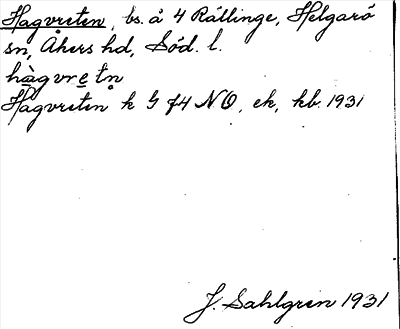 Hagvreten, bs. å 4 Rällinge, Helgarö
sn, Åkers hd, Söd. l.
hàgvre̲tn̥
Hagvreten k G f4 NO, ek, kb. 1931
J. Sahlgren 1931